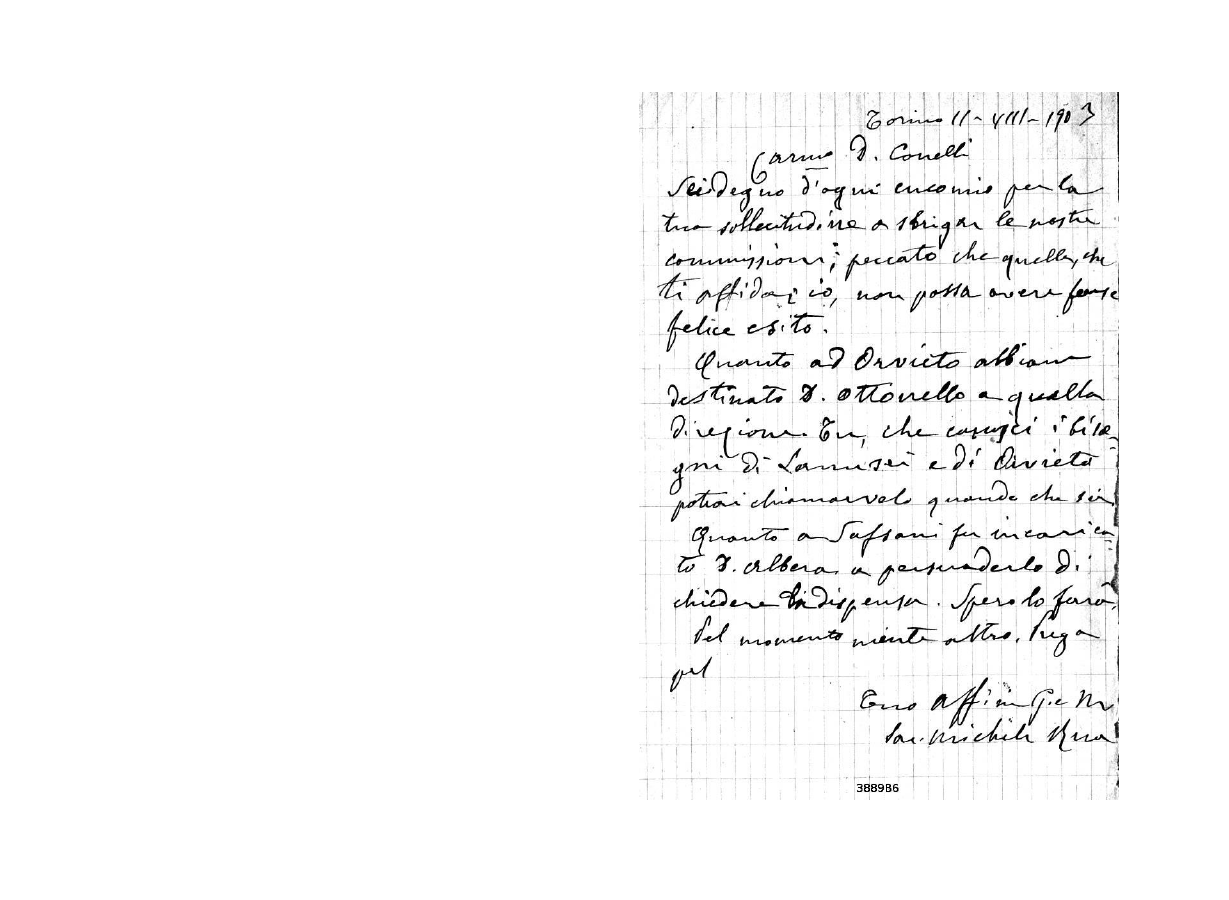 Torino 11-VIII-1903
Carmo D. Conelli
Sei degno d'ogni encomio per la
tua sollecitudine a sbrigar le nostre
commissioni; peccato che quella, che
ti affidai io, non possa avere forse
felice esito.
Quanto ad Orvieto abbiam
destinato D. Ottonello a quella
direzione. Tu, che conosci i biso-
gni di Lanusei e di Orvieto
potrai chiamarvelo quando che sia
Quanto a Saffani fu incarica-
to D. Albera a persuaderlo di
chiedere la dispensa. Spero lo farà,
Pel momento niente altro. Prega
pel
Tuo Aff in G. e M
Sac. Michele Rua
388986